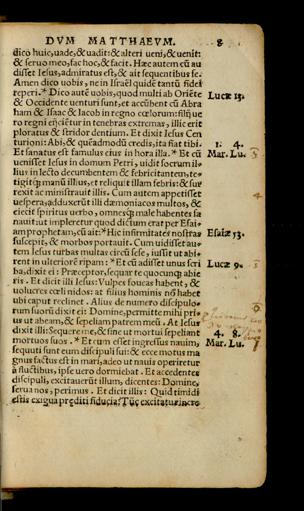 DVM MATTHAEVM. 8
dico huic, uade, & uadit: & alteri ueni, & uenit:
& seruo meo, fac hoc, & facit. Hæc autem cũ au
disset Iesus, admiratus est, & ait sequentibus se.
Amen dico uobis, ne in Israël quidē tantũ fidei
reperi. * Dico autē uobis, quod multi ab Oriēte
Lucæ 13.
& Occidente uenturi sunt, et accũbent cũ Abra
ham & Isaac & Iacob in regno cœlorum: filij ue
ro regni eijciẽtur in tenebras extremas, illic erit
ploratus & stridor dentium. Et dixit Iesus Cen
turioni: Abi, & quẽadmodũ credis, ita fiat tibi.
1. 4.
Et sanatus est famulus eius in hora illa. * Et cũ
Mar. Lu.
uenisset Iesus in domum Petri, uidit socrum il-
lius in lecto decumbentem & febricitantem, te-
tigitq; manũ illius, et reliquit illam febris: & sur
rexit ac ministrauit illis. Cum autem appetisset
uespera, adduxerũt illi dæmoniacos multos, &
eiecit spiritus uerbo, omnesq; male habentes sa
nauit, ut impleretur quod dictum erat per Esai-
am prophetam, cũ ait: * Hic infirmitates nostras
Esaiæ 53.
suscepit, & morbos portauit. Cum uidisset au-
tem Iesus turbas multas circũ sese, iussit ut abi-
rent in ulteriorē ripam: * Et cũ adisset unus scri
Lucæ 9.
ba, dixit ei: Præceptor, sequar te quocunq; abie
ris. Et dicit illi Iesus: Vulpes foueas habent, &
uolucres cœli nidos: at filius hominis nõ habet
ubi caput reclinet. Alius de numero discipulo-
rum suorũ dixit ei: Domine, permitte mihi pri-
us ut abeam, & sepeliam patrem meũ. At Iesus
dixit illi: Sequere me, & sine ut mortui sepeliant
4. 8.
mortuos suos. * Et cum esset ingressus nauim,
Mar. Lu.
sequuti sunt eum discipuli sui: & ecce motus ma
gnus factus est in mari, adeo ut nauis operiretur
à fluctibus, ipse uero dormiebat. Et accedentes
discipuli, excitauerũt illum, dicentes: Domine,
serua nos, perimus. Et dicit illis: Quid timidi
estis exigua præditi fiducia? Tũc excitatus incre